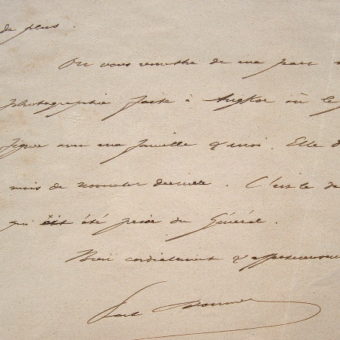 de plus.
On vous remettra de ma part
photographie faite à Angkor où le
figure avec ma famille & moi. Elle
mois de novembre dernier. C'est le
qui ait été prise du Général.
Bien cordialement &
Paul Doumer